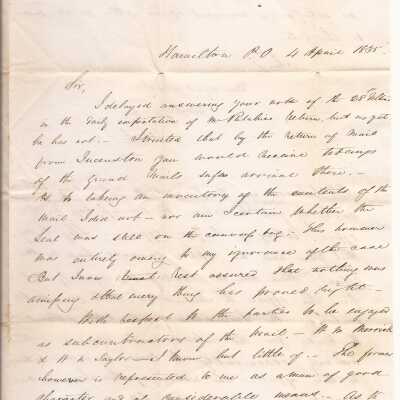 Hamilton P.O. 4 April 1835.
Sir,
I delayed answering your note of the 28th
in the daily expectation of Mr Ritchies return, but as yet
he has not. I trusted that by the return of Mail
from you would receive tidings
of the Grand Mails safe arrival there.
As to taking an inventory of the contents of the
Mail I did not - nor am I certain whether the
Seal was still on the bag - This however
was entirely owing to my ignorance of the case
But I now rest assured that nothing was
amissing & that every thing has proved right -
With respect to the parties to be engaged
as subcontractors of the Mail - W. M. Merrick
& W. A. Taylor - I know but little of - The former
however is represented to me as a man of good
character and of considerable means. As to